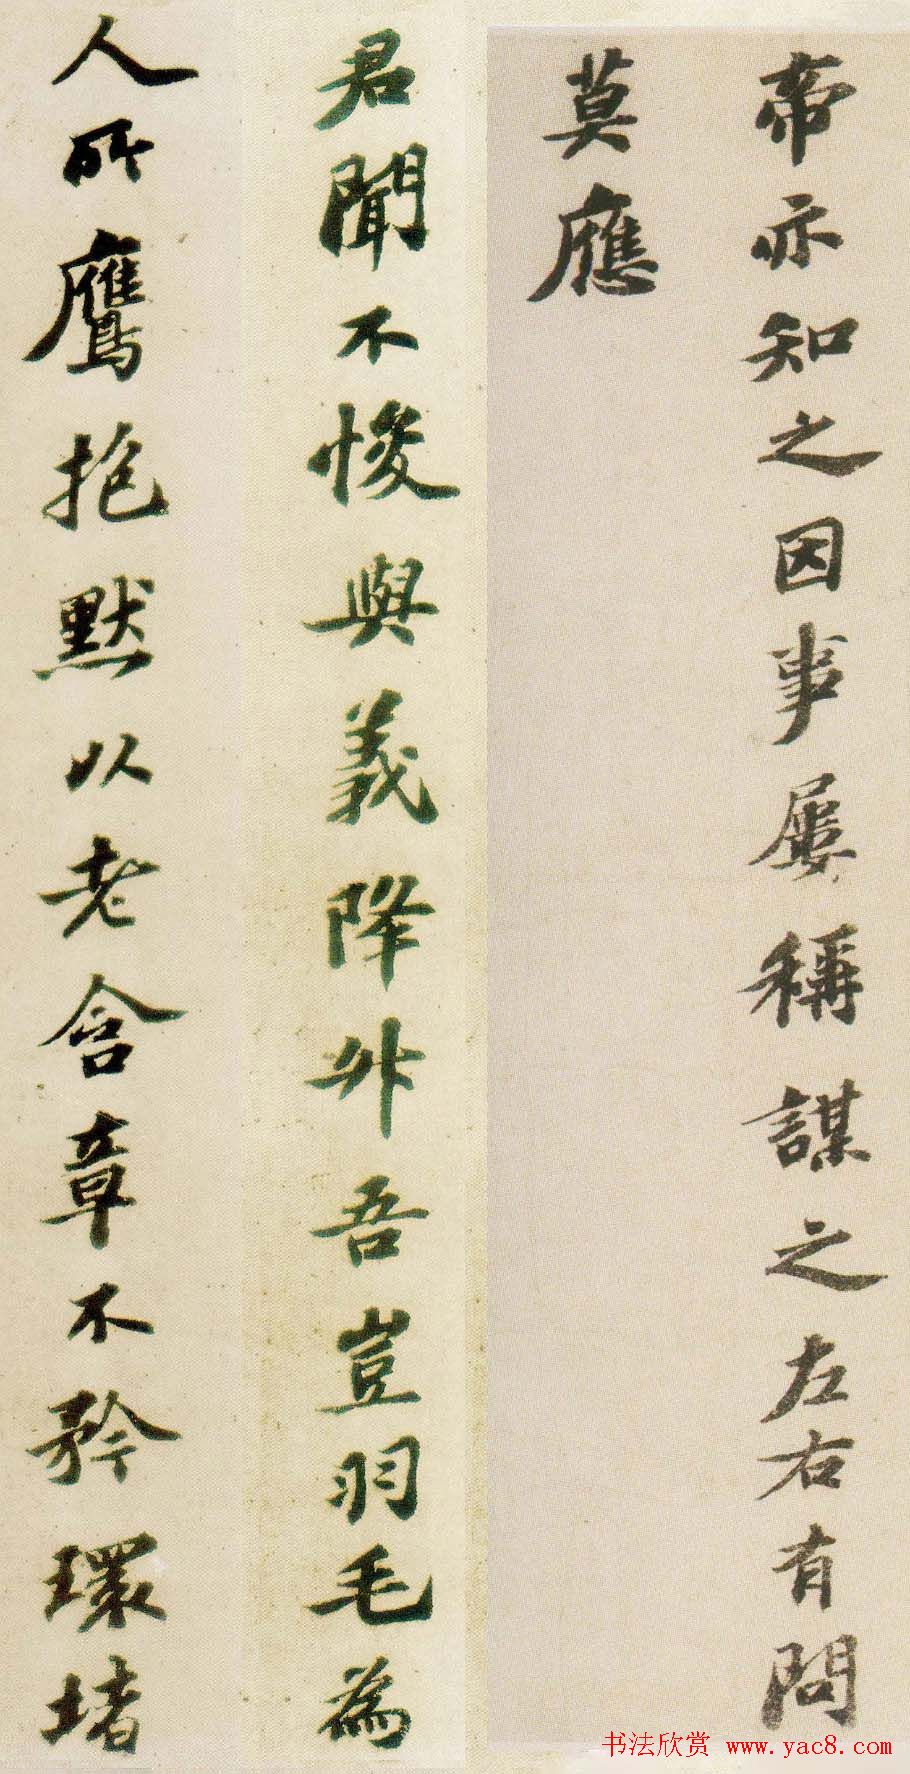 帝亦知之因事屡稱謀之左右有問
莫應
君聞不悛與義降升吾豈羽毛為
人所鷹抱默以老含章不矜環堵
书法欣赏 www.yac8.com